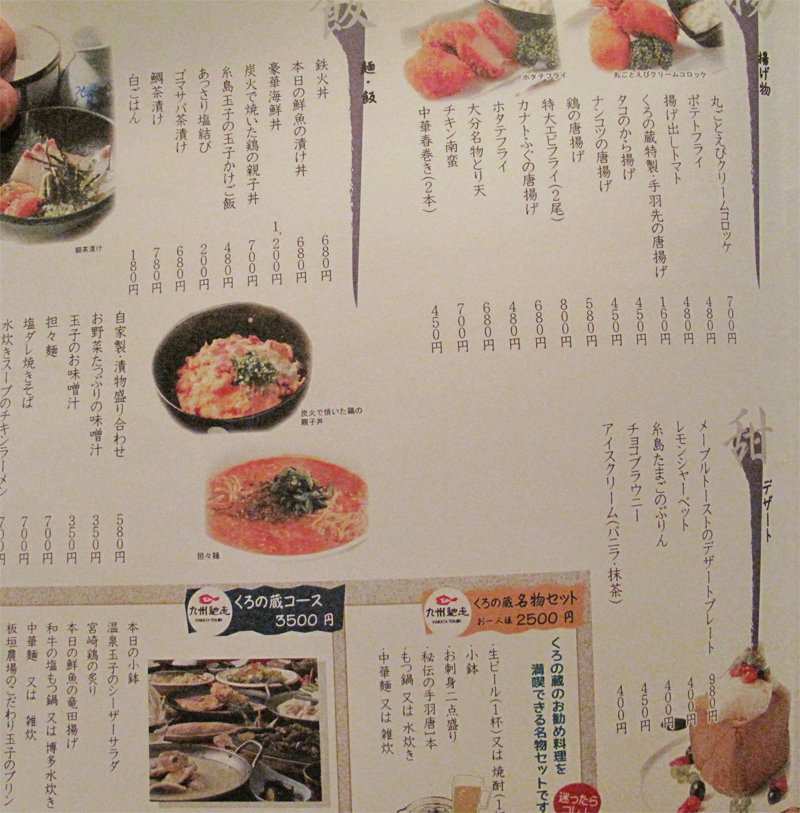 揚げ物
ホタテフライ
丸ごとえびクリームコロッケ
丸ごとえびクリームコロッケ 700円
ポテトフライ 480円
揚げ出しトマト 480円
くろの蔵特製・手羽先の唐揚げ 160円
タコのから揚げ 450円
ナンコツの唐揚げ 450円
鶏の唐揚げ 580円
特大エビフライ(2尾) 800円
カナトふぐの唐揚げ 680円
ホタテフライ 480円
大分名物とり天 680円
チキン南蛮 700円
中華春巻き(2本) 450円
飯
麺・飯
鉄火丼 680円
本日の鮮魚の漬け丼 680円
豪華海鮮丼 1,200円
炭火で焼いた鶏の親子丼 700円
糸島玉子の玉子かけご飯 480円
あっさり塩結び 200円
ゴマサバ茶漬け 680円
鯛茶漬け 780円
白ごはん 180円
鯛茶漬け
自家製・漬物盛り合わせ 580円
お野菜たっぷりの味噌汁 350円
玉子のお味噌汁 350円
担々麺 700円
塩ダレ焼きそば 700円
水炊きスープのチキンラーメン 700円
炭火で焼いた鶏の
親子丼
担々麺
甜
デザート
メープルトーストのデザートプレート 980円
レモンシャーベット 400円
糸島たまごのぷりん 400円
チョコブラウニー 450円
アイスクリーム(バニラ・抹茶) 400円
九州馳走
HAKATA TENJIN
くろの蔵名物セット
お一人様 2500円
くろの蔵のお勧め料理を
満喫できる名物セットです
・生ビール(1杯)又は 焼酎(1
・小鉢
・お刺身二点盛り
・秘伝の手羽唐1本
・もつ鍋 又は 水炊き
・中華麺 又は 雑炊
迷ったら
コレ!
九州馳走
HAKATA TENJIN
くろの蔵コース
3500 円
本日の小鉢
温泉玉子のシーザーサラダ
宮崎鶏の炙り
本日の鮮魚の竜田揚げ
和牛の塩もつ鍋 又は 博多水炊き
中華麺 又は 雑炊
板垣農場のこだわり玉子のプリン